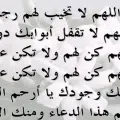 اللهم لا تخيب لهم رج
م لا تقفل أبوابك دو
هم كن لهم ولا تكن ع
هم كن لهم ولا تكن
ك وجودك يا أرحم ال
هذا الدعاء ومنك ال